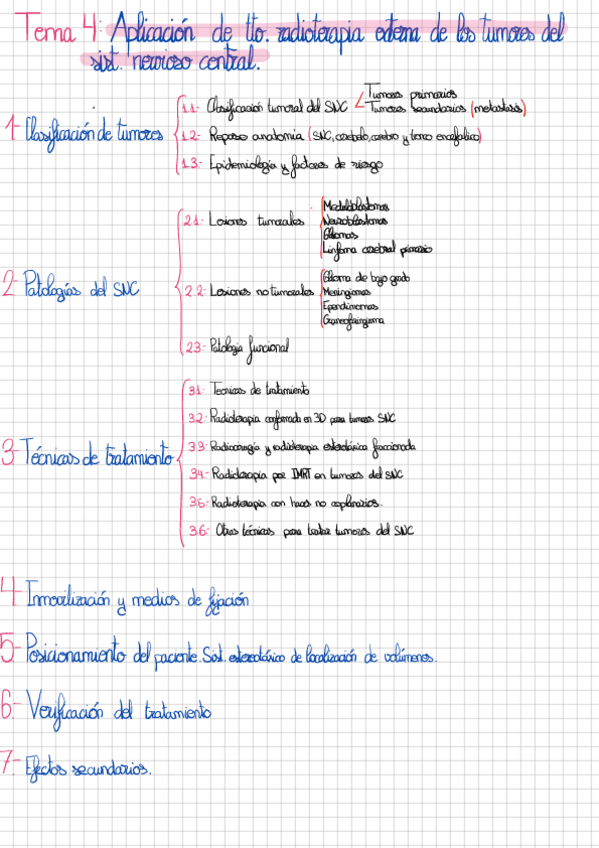 Tema 4: Aplicación de tto. radioterapia externa de los tumores del
sist. nervioso central.
1- Clasificación de tumores
1.1- Clasificación tumoral del SNC
Tumores primarios
Tumores secundarios (metastasis)
1.2- Repaso anatomia (SNC, cerebelo, cerebro y tronco encefalico)
1.3- Epidemiología y factores de riesgo
2- Patologías del SNC
2.1- Lesiones tumorales
Meduloblastomas
Neuroblastomas
Gliomas
Linfoma cerebral primario
2.2- Lesiones no tumorales
Glioma de bajo grado
Meningiomas
Ependimomas
Craneofaringioma
2.3- Patología funcional
3- Técnicas de tratamiento
3.1- Tecnicas de tratamiento
3.2- Radioterapia conformada en 3D para tumores SNC
3.3- Radiocirugía y radioterapia esterotáxica fraccionada
3.4- Radioterapia por IMRT en tumores del SNC
3.5- Radioterapia con haces no coplanarios.
3.6- Otras técnicas para tratar tumores del SNC
4- Inmovilización y medios de fijación
5- Posicionamiento del paciente. Sist. esterotáxico de localización de volúmenes.
6- Verificación del tratamiento
7- Efectos secundarios.